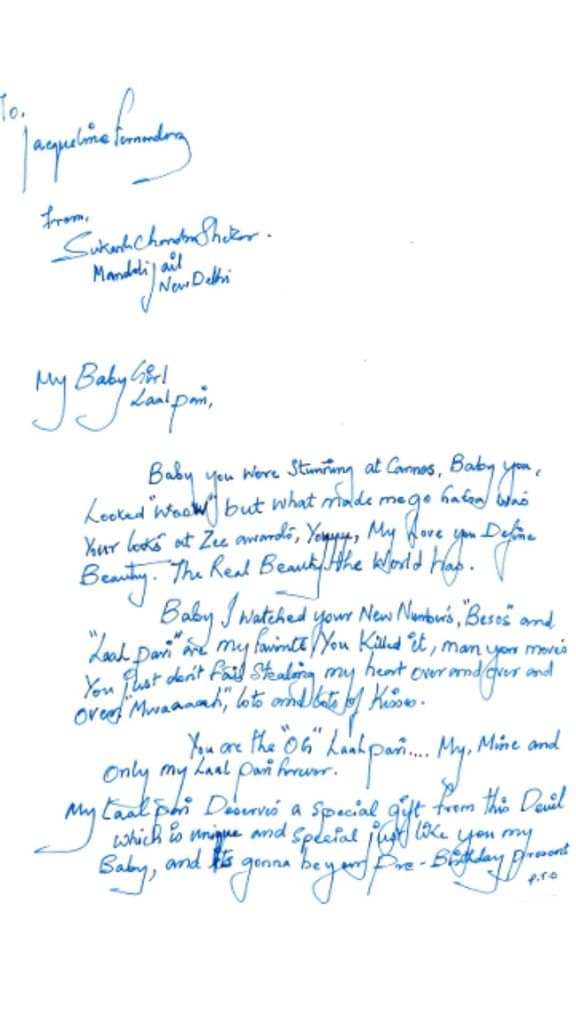 To,
Jacqueline Fernandez
From,
Sukash Chandra Shekar.
Mandoli jail
New Delhi
My Baby Girl
Laal pari,
Baby you were Stunning at Cannes, Baby you,
Looked "Woow" but what made me go was
Your looks at Zee awards, My Love you Define
Beauty. The Real Beauty the World has.
Baby I watched your New Numbers, "Besos" and
"Laal pari" are my favourite, You Killed it, man your moves
You just don't fail Stealing my heart over and over and
Over, "Mwaaaaah", lots and lots of Kisses.
You are the "OG" Laal pari.... My, Mine and
Only my Laal pari forever.
My Laal pari Deserves a special gift from this Devil
which is unique and special just like you my
Baby, and its gonna be your Pre-Birthday present
P.T.O